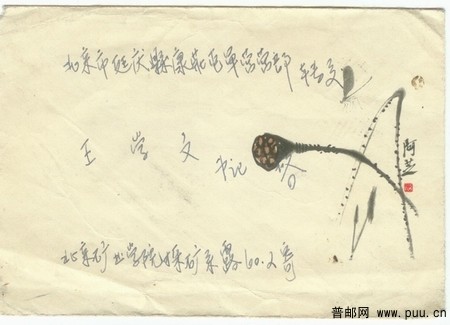 北京市延庆縣康庄屯军营部 转交
王学文
书记 收
阿芝
北京矿业学院採矿系露60.2寄
普邮网 www.puu.cn